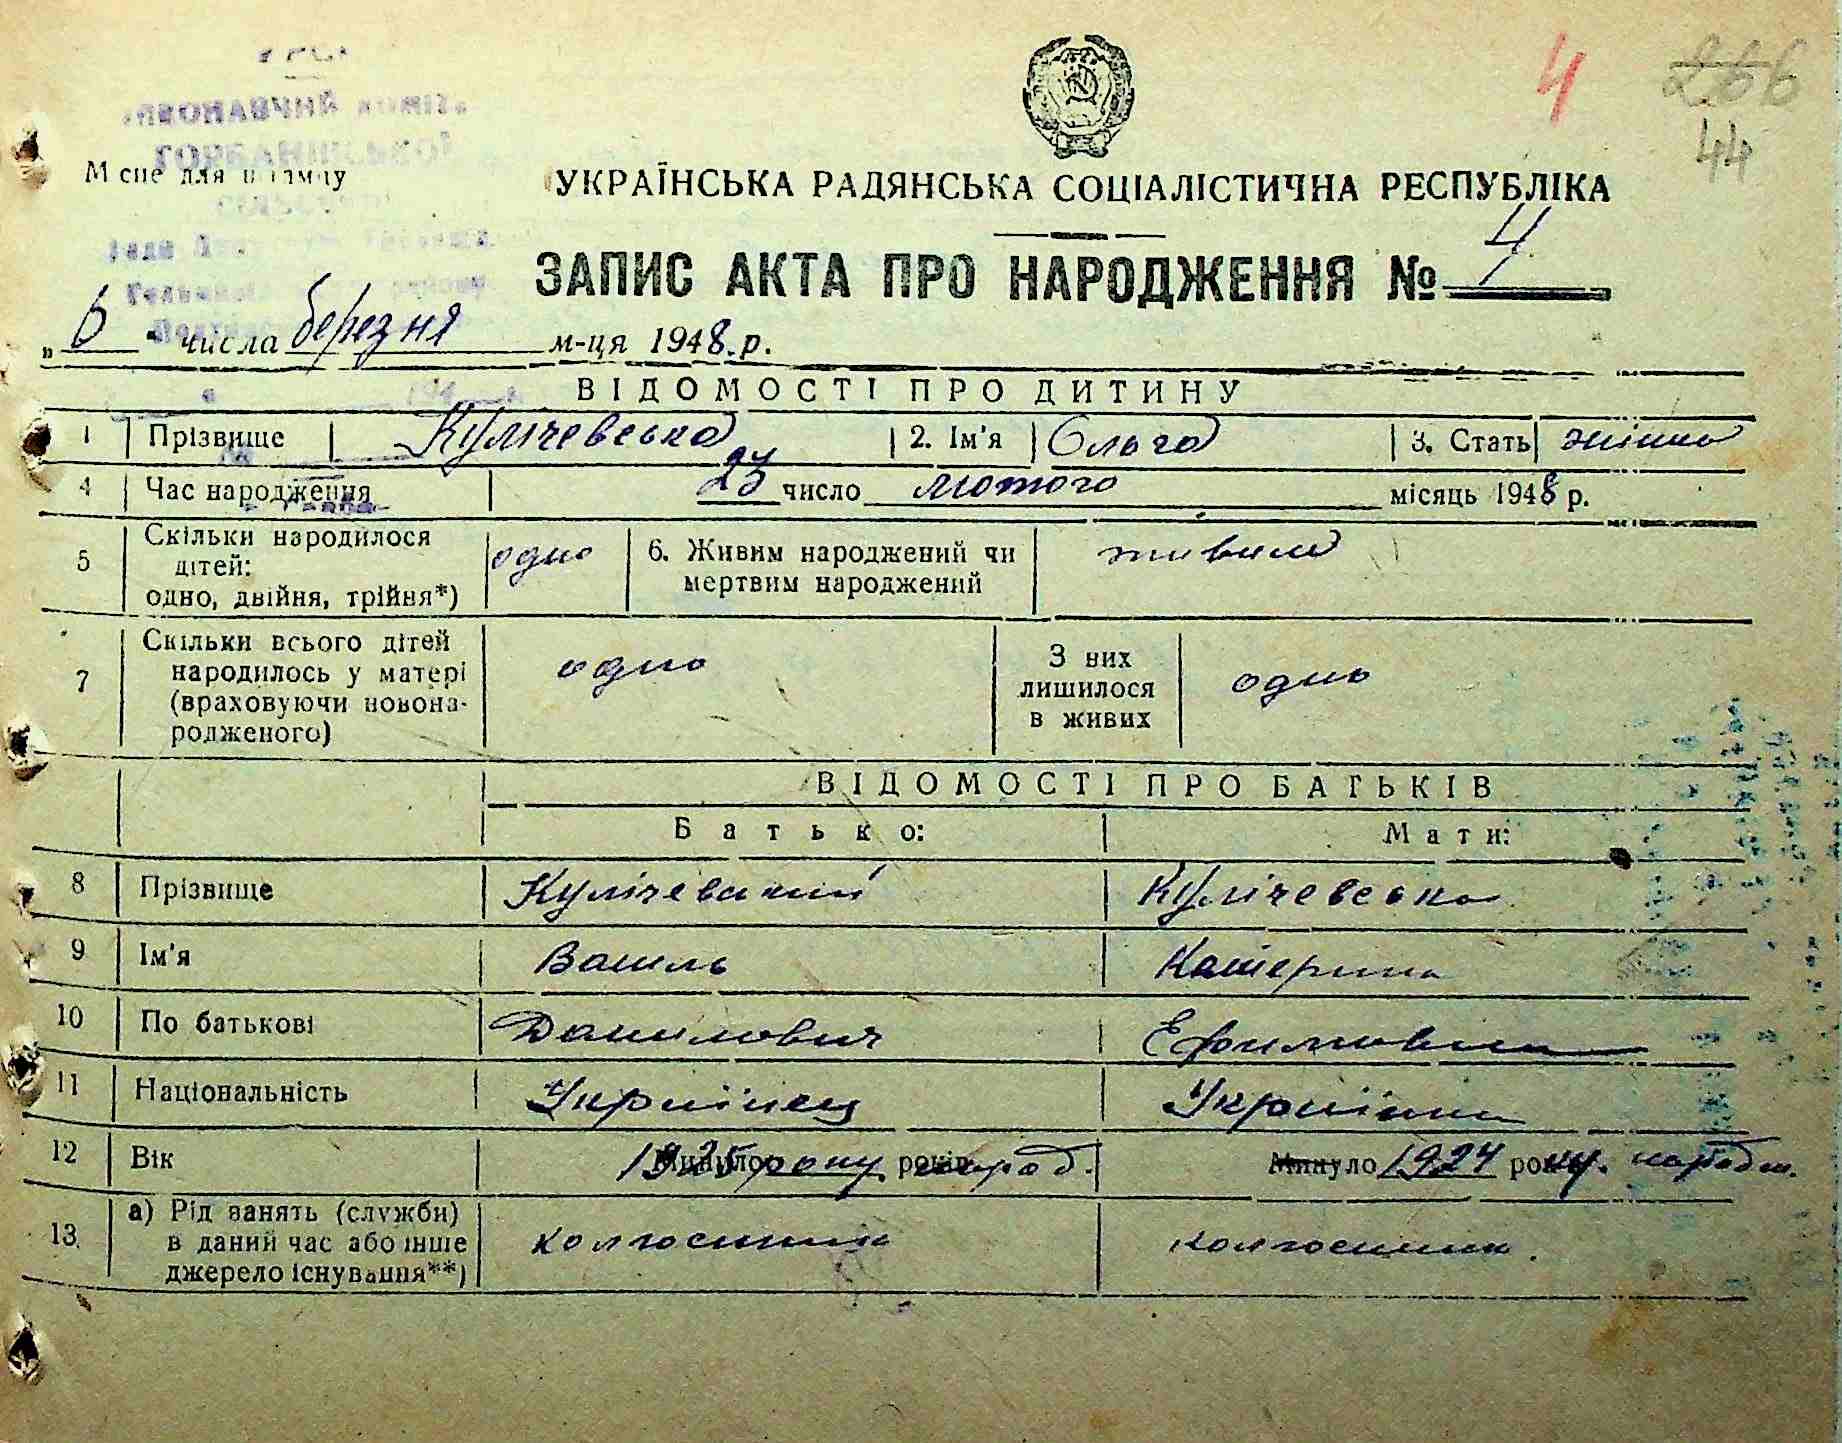 4
266
44
ВИКОНАВЧИЙ КОМІТЕТ
ГОРБАНІВСЬКОЇ
Місце для штампу
УКРАЇНСЬКА РАДЯНСЬКА СОЦІАЛІСТИЧНА РЕСПУБЛІКА
ЗАПИС АКТА ПРО НАРОДЖЕННЯ № 4
„ 6 " числа березня м-ця 1948.р.
ВІДОМОСТІ ПРО ДИТИНУ
1 Прізвище Кулічевська 2. Ім'я Ольга 3. Стать жіноча
4 Час народження 23 число лютого місяць 1948 р.
5 Скільки народилося дітей: одно, двійня, трійня*) одно 6. Живим народжений чи мертвим народжений живим
7 Скільки всього дітей народилось у матері (враховуючи новонародженого) одно З них лишилося в живих одно
ВІДОМОСТІ ПРО БАТЬКІВ
Батько: Мати:
8 Прізвище Кулічевський Кулічевська
9 Ім'я Василь Катерина
10 По батькові Данилович Ефимовна
11 Національність Українец Українка
12 Вік Минуло 1925 року років народ. Минуло 1924 року. народж.
13. а) Рід занять (служби) в даний час або інше джерело існування**) колгоспник колгоспниця.